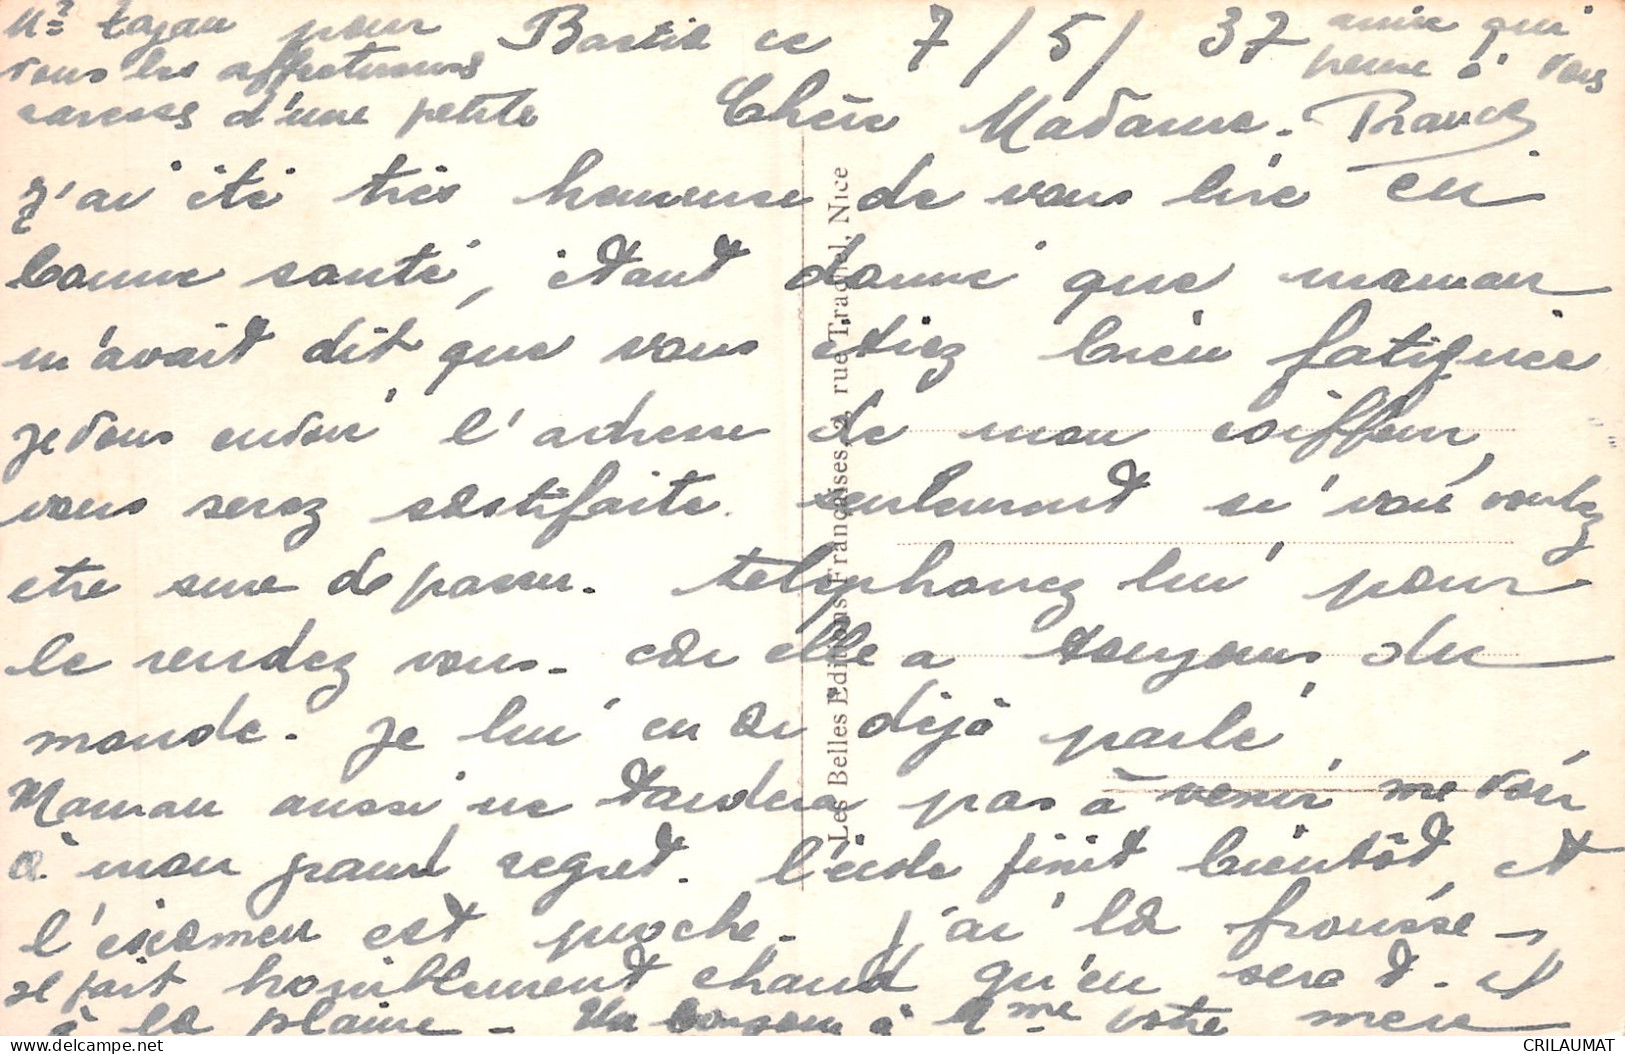 Bastia ce 7/5/37
Chère Madame.
J'ai été très heureuse de vous lire en
bonne santé, étant donné que maman
m'avait dit que vous etiez bien fatiguée
je vous envoie l'adresse de mon coiffeur,
vous serez sastifaite. seulement si vous voulez
etre sure de passer. telephonez lui pour
le rendez vous. car elle a toujours du
monde. je lui en ai déjà parlé
Maman aussi ne tardera pas à venir me voir
à mon grand regret. l'école finit bientôt et
l'examen est proche. j'ai la frousse.
il fait horriblement chaud qu'en sera t. il
à la plaine. Un bonjour à Mme votre mere
Mr Lajau pour
vous les affectueuses
caresses d'une petite
amie qui
pense à vous
Les Belles Editions Françaises, 2, rue Trachel, Nice
CRILAUMAT